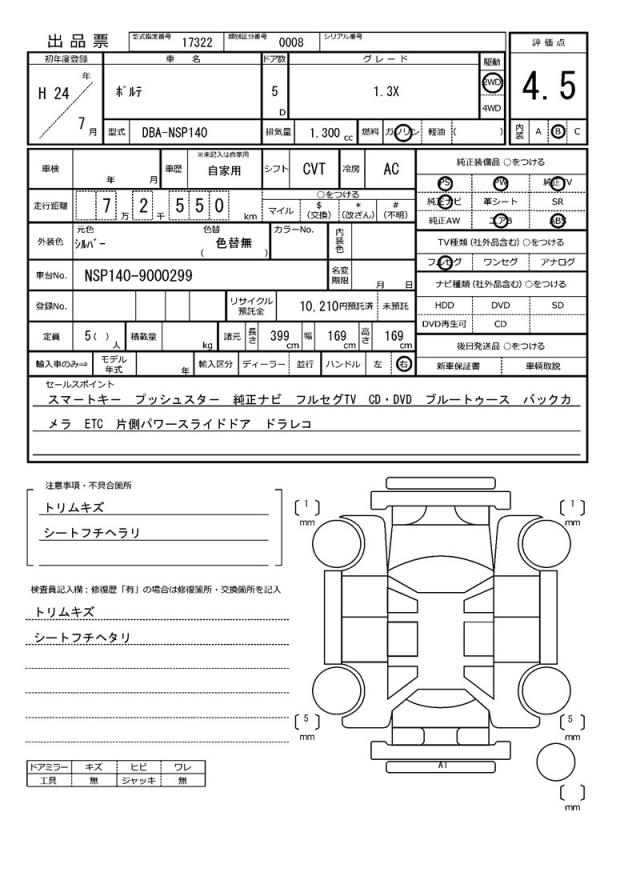 出品票 型式指定番号 17322 類別区分番号 0008 シリアル番号
評価点
4.5
初年度登録 車名 ドア数 グレード 駆動
H 24 年 ﾎﾟﾙﾃ 5 D 1.3X 2WD
4WD
7 月 型式 DBA-NSP140 排気量 1.300 cc 燃料 ガソリン 軽油 ( )
内装 A B C
車検 年 月 車歴 ※未記入は自家用 自家用 シフト CVT 冷房 AC
走行距離 7 万 2 千 5 5 0 km
○をつける
マイル $(交換) *(改ざん) #(不明)
外装色 元色 ｼﾙﾊﾞｰ 色替 ( 色替無 ) カラーNo. 内装色
車台No. NSP140-9000299 名変期限 月 日
登録No. リサイクル預託金 10,210円預託済 未預託
定員 5( ) 人 積載量 kg 諸元 長さ 399 cm 幅 169 cm 高さ 169 cm
輸入車のみ⇒ モデル年式 年 輸入区分 ディーラー 並行 ハンドル 左 右
純正装備品 ○をつける
PS PW 純正TV
純正ナビ 革シート SR
純正AW エアB ABS
TV種類(社外品含む) ○をつける
フルセグ ワンセグ アナログ
ナビ種類(社外品含む) ○をつける
HDD DVD SD
DVD再生可 CD
後日発送品 ○をつける
新車保証書 車輌取説
セールスポイント
スマートキー プッシュスター 純正ナビ フルセグTV CD・DVD ブルートゥース バックカ
メラ ETC 片側パワースライドドア ドラレコ
注意事項・不具合箇所
トリムキズ
シートフチヘラリ
検査員記入欄：修復歴「有」の場合は修復箇所・交換箇所を記入
トリムキズ
シートフチヘタリ
ドアミラー キズ ヒビ ワレ
工具 無 ジャッキ 無
1 mm
1 mm
5 mm
5 mm
A1
mm